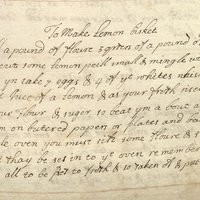 To Make Lemon bisket
a pound of flours & grten of a pound of
some lemon peill small & mingle
yn take 7 eggs & 4 of ye whites
Juce of a Lemon & as your froth
your flour & suger, so beat ym a bout a
on butterred papers or plates and
oven you must sett some flours &
thay be set in to ye oven remember
all to be Bet to froth & so taken of & put